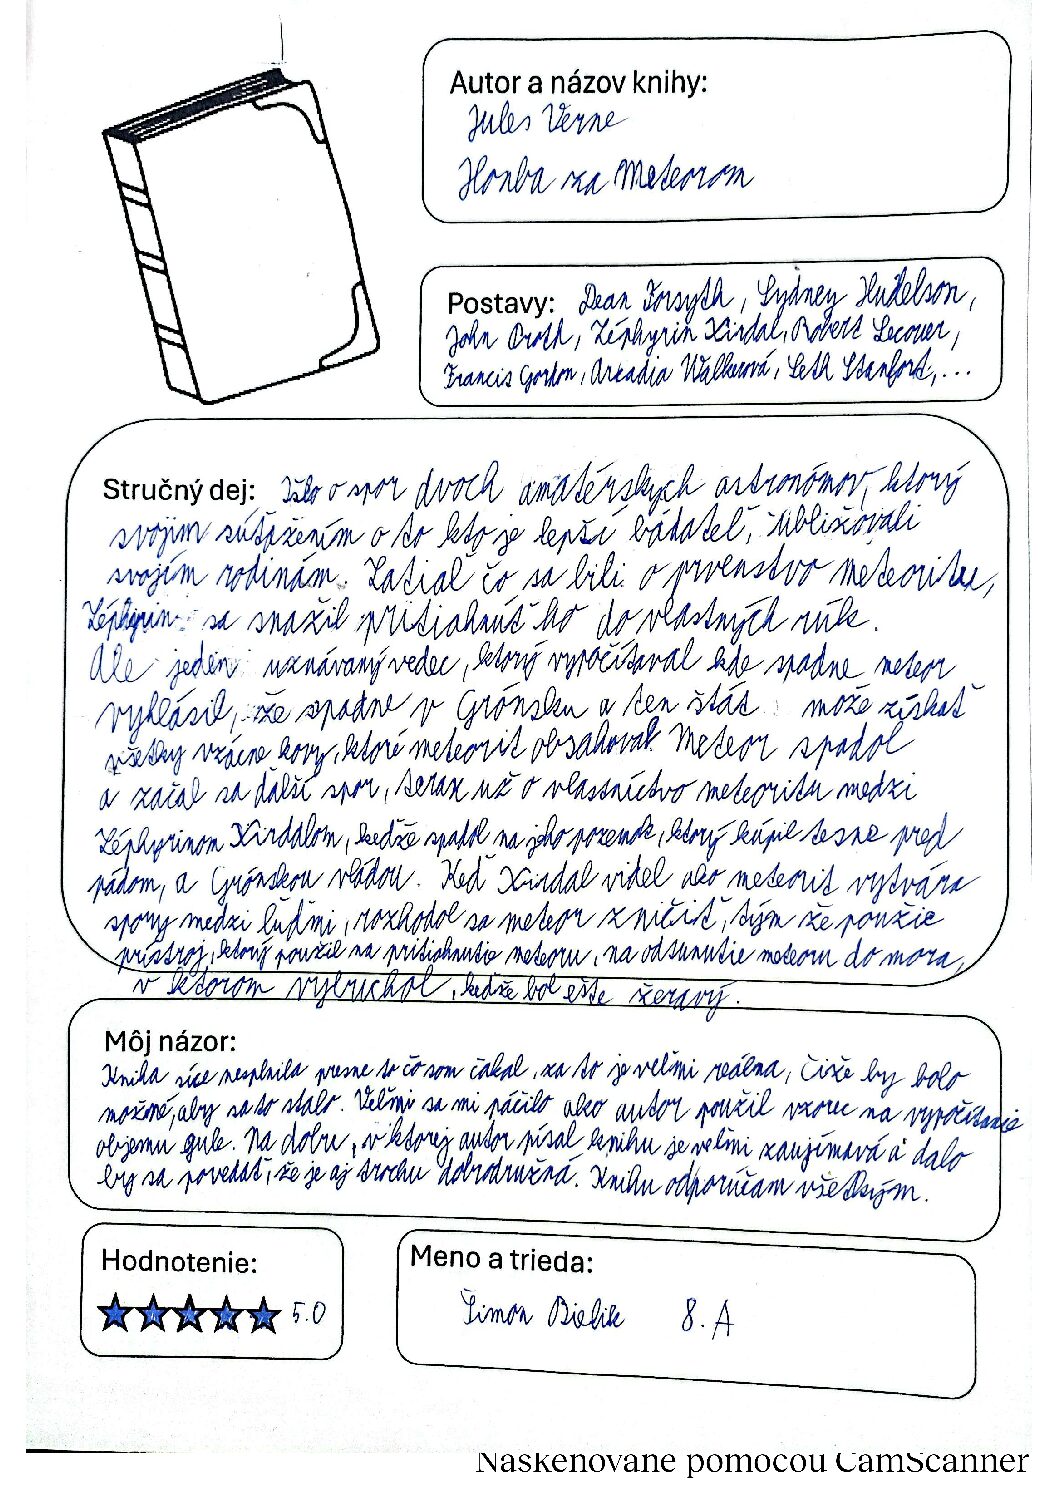 Autor a názov knihy:
Jules Verne
Honba za Meteorom
Postavy: Dean Forsyth, Sydney Hudelson,
John Proth, Zéphyrin Xirdal, Robert Lecouer,
Francis Gordon, Arcadia Walkerová, Seth Stanfort,...
Stručný dej: Išlo o spor dvoch amatérskych astronómov, ktorý
svojím súťažením o to kto je lepší bádateľ, ubližovali
svojím rodinám. Zatiaľ čo sa bili o prvenstvo meteoritu,
Zéphyrin sa snažil pritiahnúť ho do vlastných rúk.
Ale jeden uznávaný vedec, ktorý vypočítaval kde spadne meteor
vyhlásil, že spadne v Grónsku a ten štát može získať
všetky vzácne kovy, ktoré meteorit obsahoval. Meteor spadol
a začal sa ďalší spor, teraz už o vlastníctvo meteoritu medzi
Zéphyrinom Xirdalom, kedže spadol na jeho pozemok, ktorý kúpil tesne pred
pádom, a Grónskou vládou. Keď Xirdal videl ako meteorit vytvára
spory medzi ľuďmi, rozhodol sa meteor zničiť, tým že použie
prístroj, ktorý použil na pritiahnutie meteoru, na odsunutie meteoru do mora,
v ktorom vybuchol, kedže bol ešte žeravý.
Môj názor:
Kniha síce nesplnila presne to čo som čakal, za to je veľmi reálna, čiže by bolo
možné, aby sa to stalo. Veľmi sa mi páčilo ako autor použil vzorec na vypočítanie
objemu gule. Na dobu, v ktorej autor písal knihu je veľmi zaujímavá a dalo
by sa povedať, že je aj trochu dobrodružná. Knihu odporúčam všetkým.
Hodnotenie:
5.0
Meno a trieda:
Šimon Bielik 8. A
Naskenované pomocou CamScanner